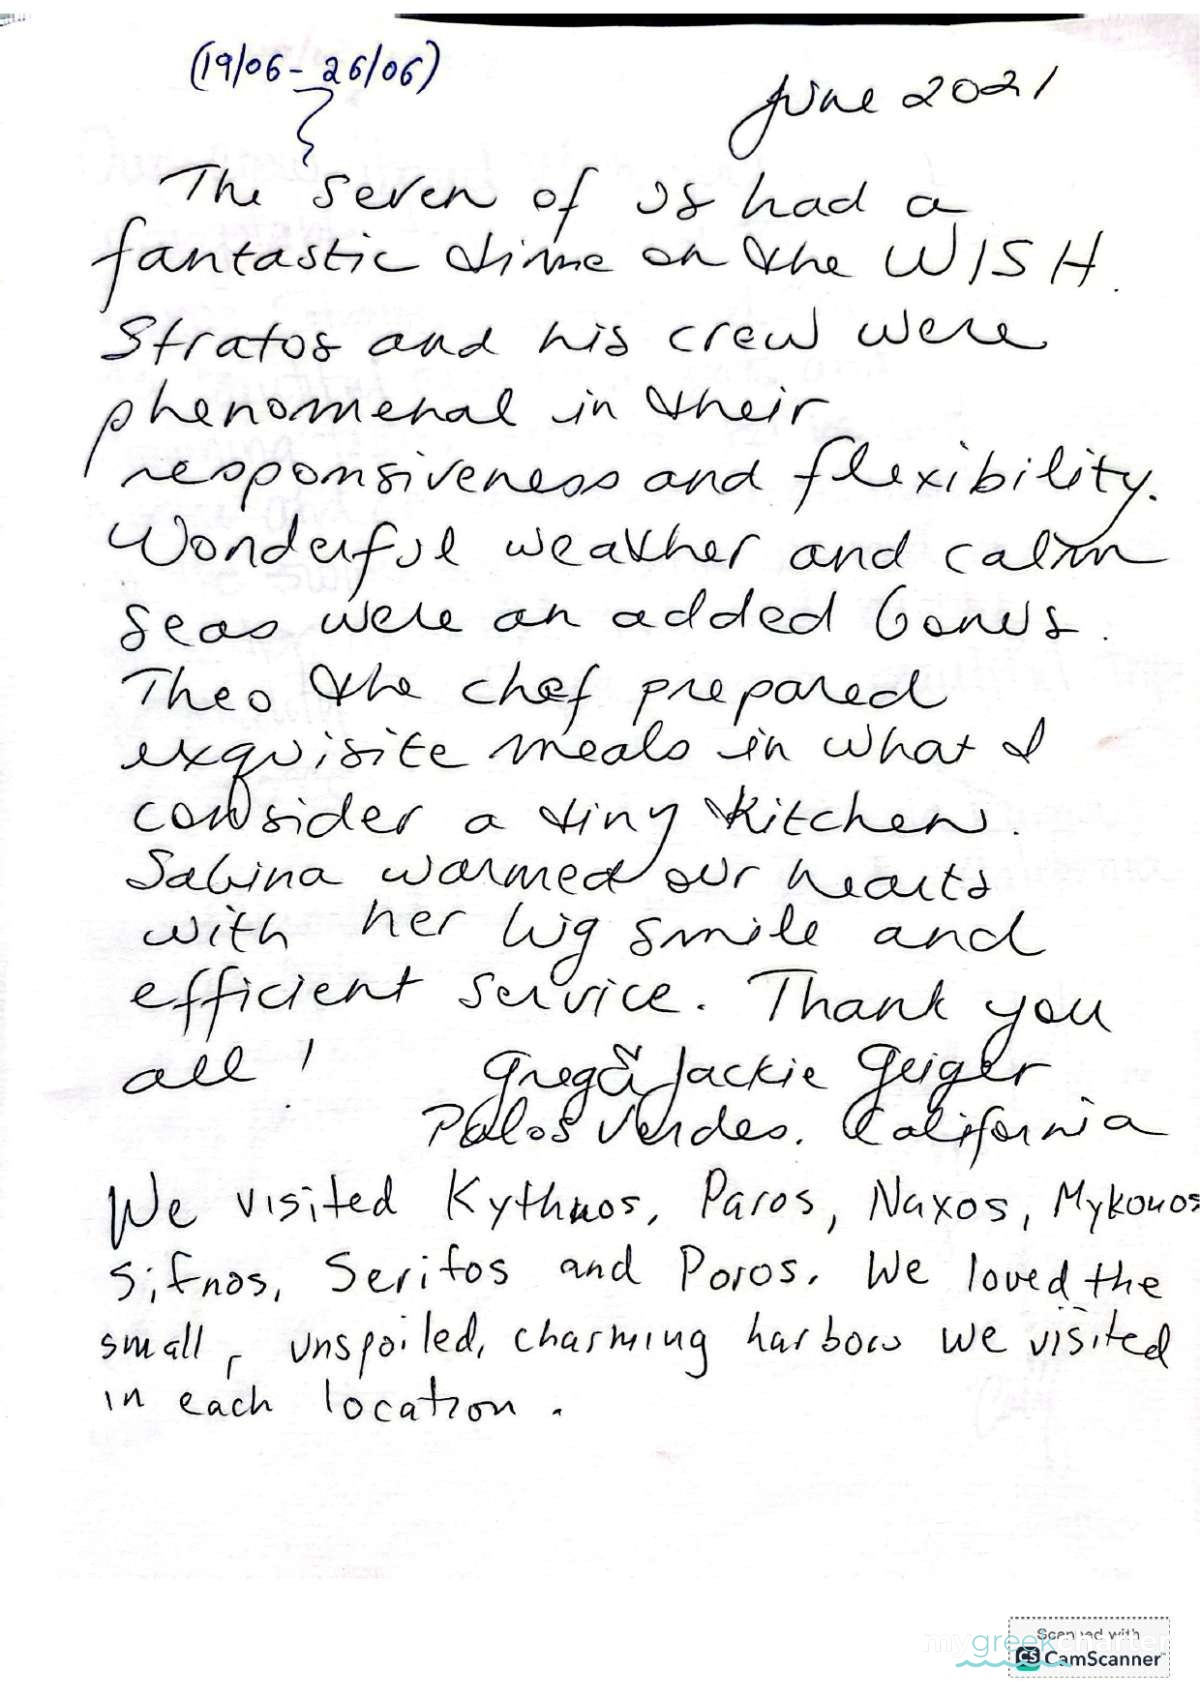 (19/06 - 26/06)
June 2021
The seven of us had a
fantastic time on the WISH.
Stratos and his crew were
phenomenal in their
responsiveness and flexibility.
Wonderful weather and calm
seas were an added bonus.
Theo the chef prepared
exquisite meals in what I
consider a tiny kitchen.
Sabina warmed our hearts
with her big smile and
efficient service. Thank you
all!
Greg & Jackie Geiger
Palos Verdes, California
We visited Kythnos, Paros, Naxos, Mykonos
Sifnos, Serifos and Poros. We loved the
small, unspoiled, charming harbors we visited
in each location.
Scanned with
CS CamScanner
mygreekcharter